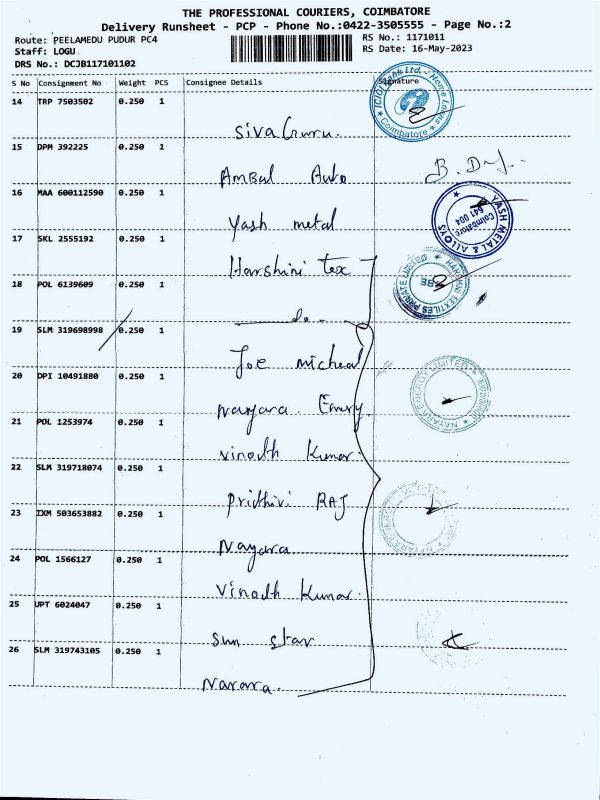 THE PROFESSIONAL COURIERS, COIMBATORE
Delivery Runsheet - PCP - Phone No.:0422-3505555 - Page No.:2
Route: PEELAMEDU PUDUR PC4 RS No.: 1171011
Staff: LOGU RS Date: 16-May-2023
DRS No.: DCJB117101102
S No Consignment No Weight PCS Consignee Details Signature
14 TRP 7503502 0.250 1 Siva Guru.
ICICI Bank Ltd. Home Loans Coimbatore
15 DPM 392225 0.250 1 Ambal Auto
16 MAA 600112590 0.250 1 Yash metal
YASH METAL & ALLOYS Coimbatore 641 004
17 SKL 2555192 0.250 1 Harshini tex
TEXTILES PRIVATE LIMITED
18 POL 6139609 0.250 1 do
19 SLM 319698998 0.250 1 Joe micheal
20 DPI 10491880 0.250 1 Nayara Energy
NAYARA ENERGY LIMITED
21 POL 1253974 0.250 1 Vinodh Kumar
22 SLM 319718074 0.250 1 Prithivi RAJ
23 IXM 503653882 0.250 1 Nayara
NAYARA ENERGY
24 POL 1566127 0.250 1 Vinodh Kumar
25 UPT 6024047 0.250 1 Sun star
26 SLM 319743105 0.250 1